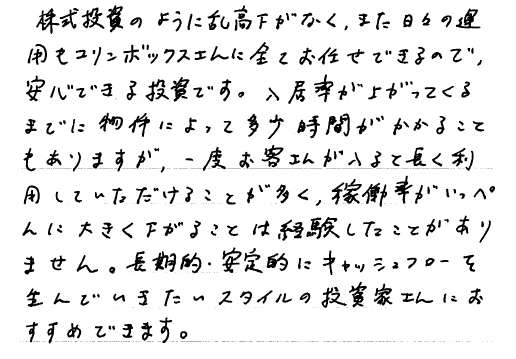 株式投資のように乱高下がなく、また日々の運
用もコリンボックスさんに全てお任せできるので、
安心できる投資です。入居率が上がってくる
までに物件によって多少時間がかかること
もありますが、一度お客さんが入ると長く利
用していただけることが多く、稼働率がいっぺ
んに大きく下がることは経験したことがあり
ません。長期的・安定的にキャッシュフローを
生んでいきたいスタイルの投資家さんにお
すすめできます。